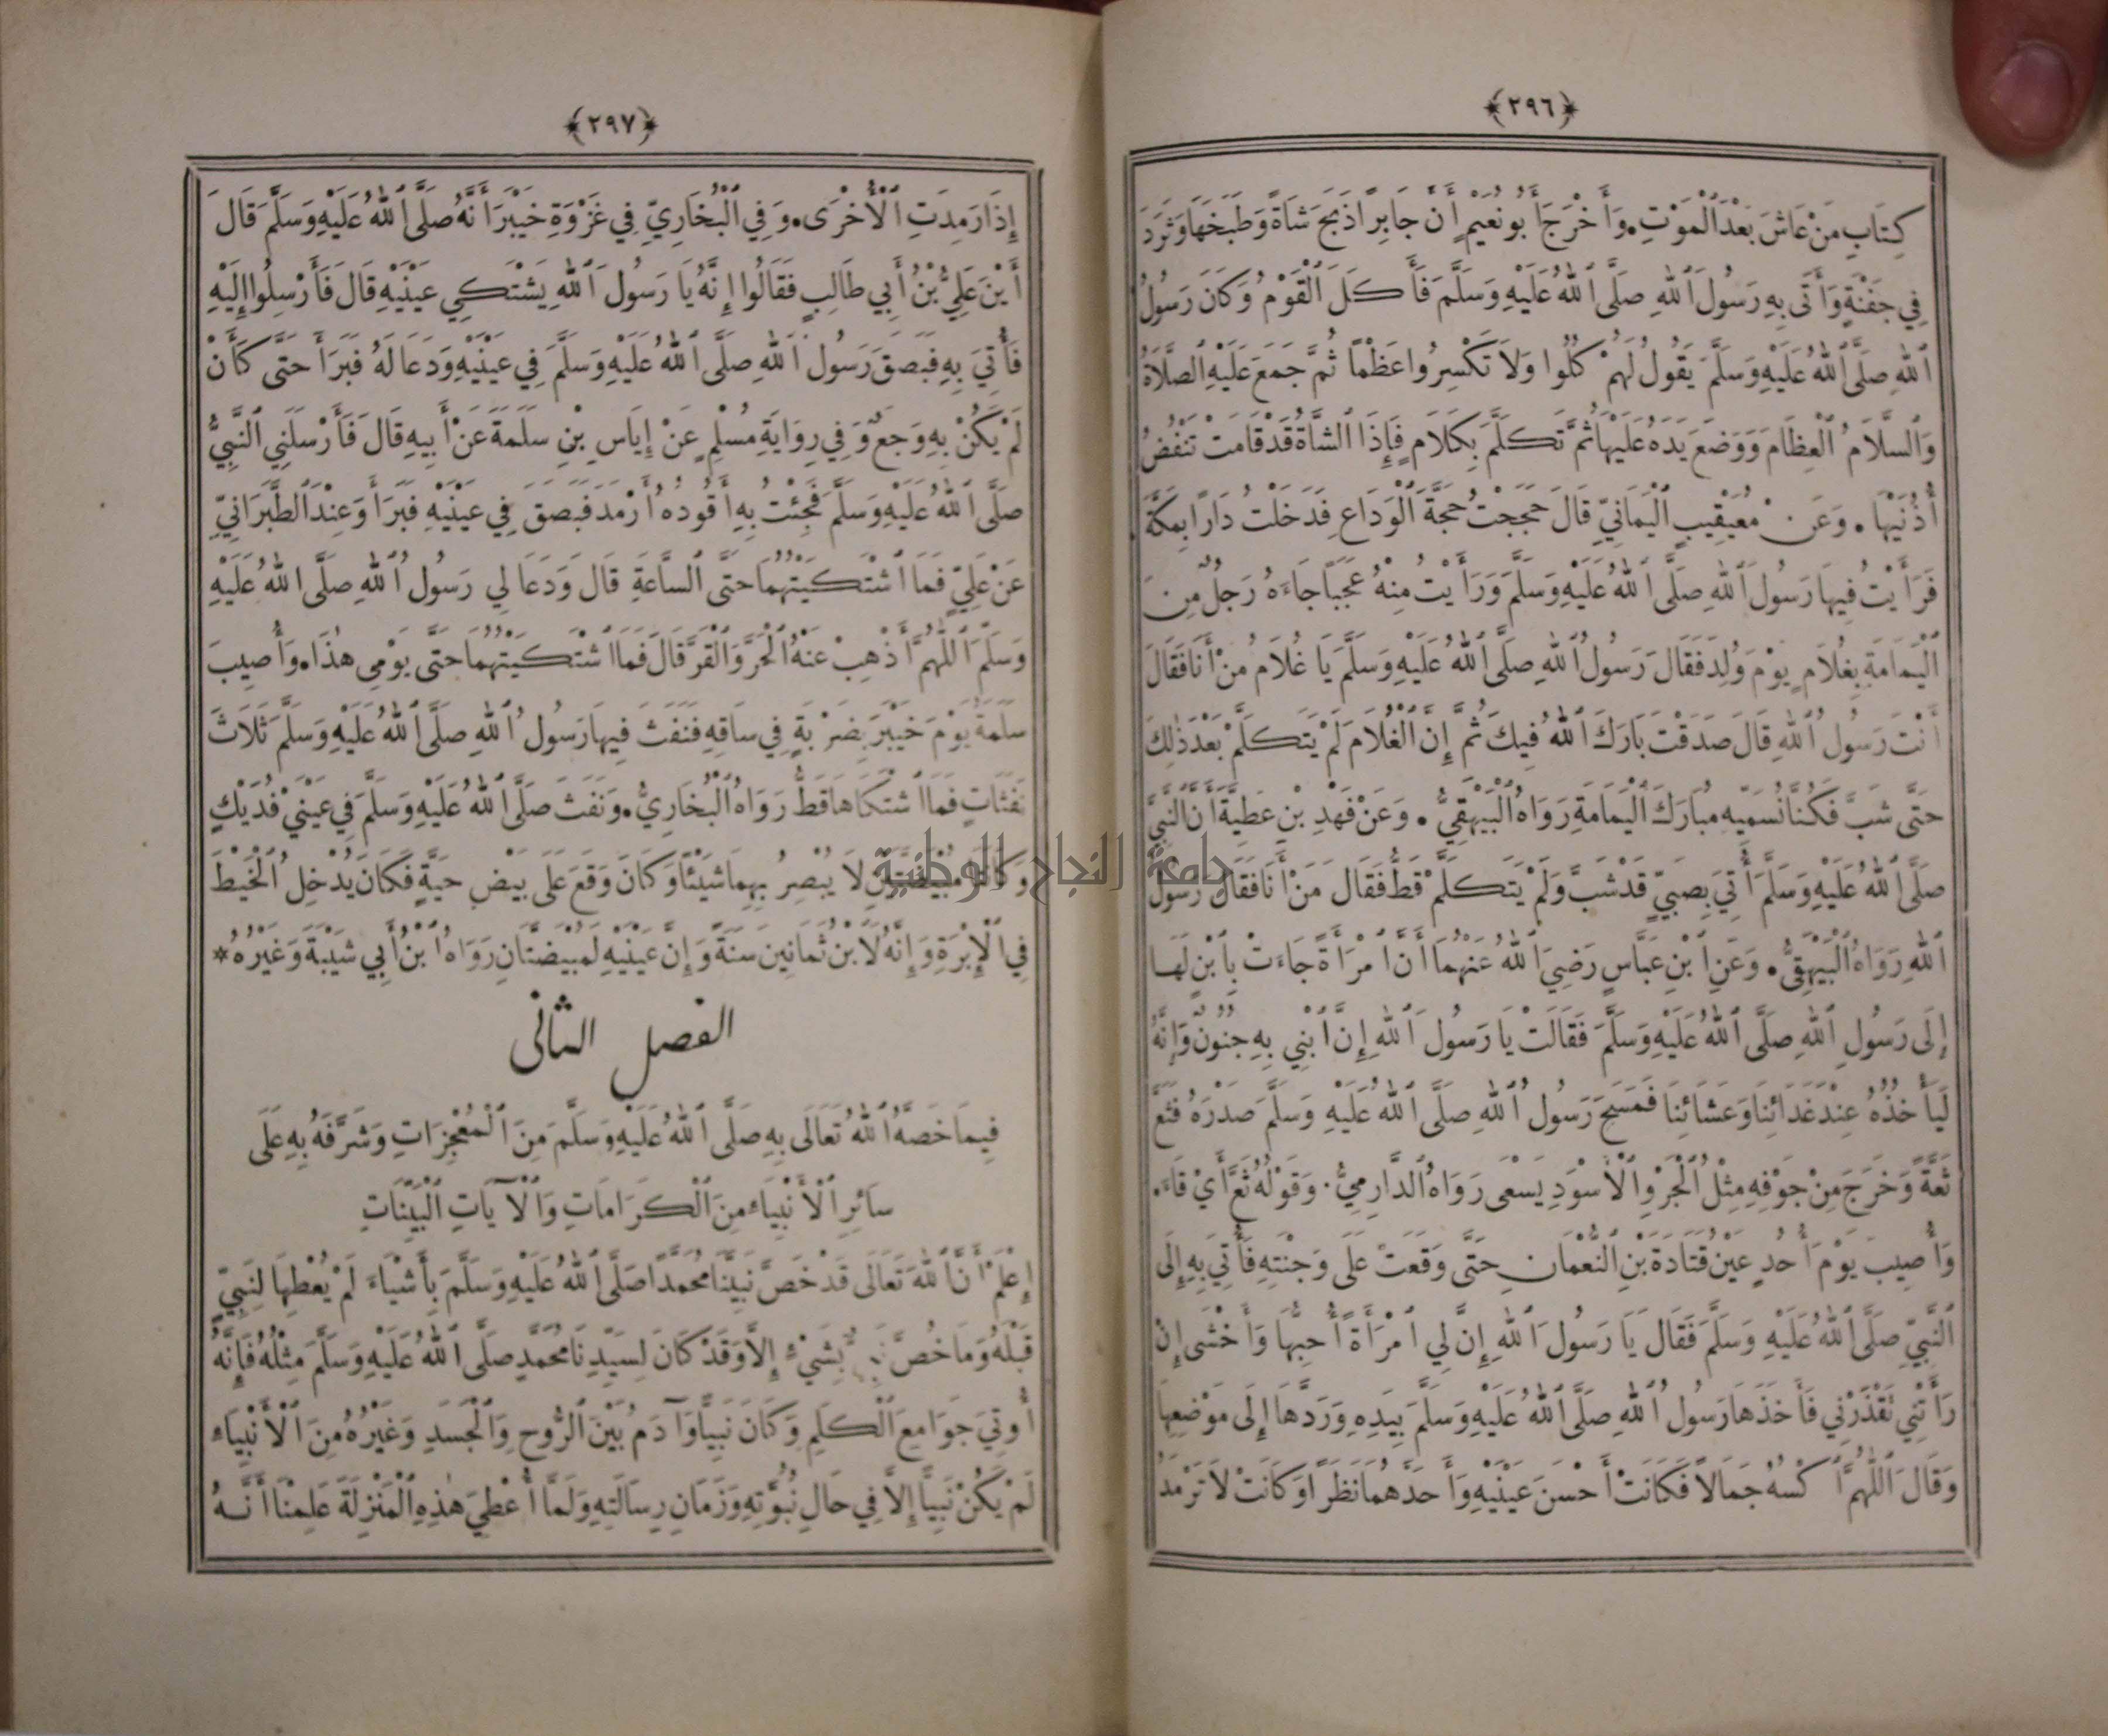 ﴿٢٩٦﴾
كِتَابِ مَنْ عَاشَ بَعْدَ ٱلْمَوْتِ. وَأَخْرَجَ أَبُو نُعَيْمٍ أَنَّ جَابِرًا ذَبَحَ شَاةً وَطَبَخَهَا وَثَرَدَ
فِي جَفْنَةٍ وَأَتَى بِهِ رَسُولَ ٱللهِ صَلَّى ٱللهُ عَلَيْهِ وَسَلَّمَ فَأَكَلَ ٱلْقَوْمُ وَكَانَ رَسُولُ
ٱللهِ صَلَّى ٱللهُ عَلَيْهِ وَسَلَّمَ يَقُولُ لَهُمْ كُلُوا وَلَا تَكْسِرُوا عَظْمًا ثُمَّ جَمَعَ عَلَيْهِ ٱلصَّلَاةُ
وَٱلسَّلَامُ ٱلْعِظَامَ وَوَضَعَ يَدَهُ عَلَيْهَا ثُمَّ تَكَلَّمَ بِكَلَامٍ فَإِذَا ٱلشَّاةُ قَدْ قَامَتْ تَنْفُضُ
أُذُنَيْهَا. وَعَنْ مُعَيْقِيبٍ ٱلْيَمَانِيِّ قَالَ حَجَجْتُ حَجَّةَ ٱلْوَدَاعِ فَدَخَلْتُ دَارًا بِمَكَّةَ
فَرَأَيْتُ فِيهَا رَسُولَ ٱللهِ صَلَّى ٱللهُ عَلَيْهِ وَسَلَّمَ وَرَأَيْتُ مِنْهُ عَجَبًا جَاءَهُ رَجُلٌ مِنَ
ٱلْيَمَامَةِ بِغُلَامٍ يَوْمَ وُلِدَ فَقَالَ رَسُولُ ٱللهِ صَلَّى ٱللهُ عَلَيْهِ وَسَلَّمَ يَا غُلَامُ مَنْ أَنَا فَقَالَ
أَنْتَ رَسُولُ ٱللهِ قَالَ صَدَقْتَ بَارَكَ ٱللهُ فِيكَ ثُمَّ إِنَّ ٱلْغُلَامَ لَمْ يَتَكَلَّمْ بَعْدَ ذٰلِكَ
حَتَّى شَبَّ فَكُنَّا نُسَمِّيهِ مُبَارَكَ ٱلْيَمَامَةِ رَوَاهُ ٱلْبَيْهَقِيُّ. وَعَنْ فَهْدِ بْنِ عَطِيَّةَ أَنَّ ٱلنَّبِيَّ
صَلَّى ٱللهُ عَلَيْهِ وَسَلَّمَ أُتِيَ بِصَبِيٍّ قَدْ شَبَّ وَلَمْ يَتَكَلَّمْ قَطُّ فَقَالَ مَنْ أَنَا فَقَالَ رَسُولُ
ٱللهِ رَوَاهُ ٱلْبَيْهَقِيُّ. وَعَنِ ٱبْنِ عَبَّاسٍ رَضِيَ ٱللهُ عَنْهُمَا أَنَّ ٱمْرَأَةً جَاءَتْ بِٱبْنٍ لَهَا
إِلَى رَسُولِ ٱللهِ صَلَّى ٱللهُ عَلَيْهِ وَسَلَّمَ فَقَالَتْ يَا رَسُولَ ٱللهِ إِنَّ ٱبْنِي بِهِ جُنُونٌ وَإِنَّهُ
لَيَأْخُذُهُ عِنْدَ غَدَائِنَا وَعَشَائِنَا فَمَسَحَ رَسُولُ ٱللهِ صَلَّى ٱللهُ عَلَيْهِ وَسَلَّمَ صَدْرَهُ فَثَعَّ
ثَعَّةً وَخَرَجَ مِنْ جَوْفِهِ مِثْلُ ٱلْجَرْوِ ٱلْأَسْوَدِ يَسْعَى رَوَاهُ ٱلدَّارِمِيُّ. وَقَوْلُهُ ثَعَّ أَيْ قَاءَ.
وَأُصِيبَ يَوْمَ أُحُدٍ عَيْنُ قَتَادَةَ بْنِ ٱلنُّعْمَانِ حَتَّى وَقَعَتْ عَلَى وَجْنَتِهِ فَأُتِيَ بِهِ إِلَى
ٱلنَّبِيِّ صَلَّى ٱللهُ عَلَيْهِ وَسَلَّمَ فَقَالَ يَا رَسُولَ ٱللهِ إِنَّ لِي ٱمْرَأَةً أُحِبُّهَا وَأَخْشَى إِنْ
رَأَتْنِي تَقْذَرُنِي فَأَخَذَهَا رَسُولُ ٱللهِ صَلَّى ٱللهُ عَلَيْهِ وَسَلَّمَ بِيَدِهِ وَرَدَّهَا إِلَى مَوْضِعِهَا
وَقَالَ ٱللّٰهُمَّ ٱكْسُهُ جَمَالًا فَكَانَتْ أَحْسَنَ عَيْنَيْهِ وَأَحَدَّهُمَا نَظَرًا وَكَانَتْ لَا تَرْمَدُ
﴿٢٩٧﴾
إِذَا رَمِدَتِ ٱلْأُخْرَى. وَفِي ٱلْبُخَارِيِّ فِي غَزْوَةِ خَيْبَرَ أَنَّهُ صَلَّى ٱللهُ عَلَيْهِ وَسَلَّمَ قَالَ
أَيْنَ عَلِيُّ بْنُ أَبِي طَالِبٍ فَقَالُوا إِنَّهُ يَا رَسُولَ ٱللهِ يَشْتَكِي عَيْنَيْهِ قَالَ فَأَرْسِلُوا إِلَيْهِ
فَأُتِيَ بِهِ فَبَصَقَ رَسُولُ ٱللهِ صَلَّى ٱللهُ عَلَيْهِ وَسَلَّمَ فِي عَيْنَيْهِ وَدَعَا لَهُ فَبَرَأَ حَتَّى كَأَنْ
لَمْ يَكُنْ بِهِ وَجَعٌ وَفِي رِوَايَةِ مُسْلِمٍ عَنْ إِيَاسِ بْنِ سَلَمَةَ عَنْ أَبِيهِ قَالَ فَأَرْسَلَنِي ٱلنَّبِيُّ
صَلَّى ٱللهُ عَلَيْهِ وَسَلَّمَ فَجِئْتُ بِهِ أَقُودُهُ أَرْمَدَ فَبَصَقَ فِي عَيْنَيْهِ فَبَرَأَ وَعِنْدَ ٱلطَّبَرَانِيِّ
عَنْ عَلِيٍّ فَمَا ٱشْتَكَيْتُهُمَا حَتَّى ٱلسَّاعَةِ قَالَ وَدَعَا لِي رَسُولُ ٱللهِ صَلَّى ٱللهُ عَلَيْهِ
وَسَلَّمَ ٱللّٰهُمَّ أَذْهِبْ عَنْهُ ٱلْحَرَّ وَٱلْقَرَّ قَالَ فَمَا ٱشْتَكَيْتُهُمَا حَتَّى يَوْمِي هٰذَا. وَأُصِيبَ
سَلَمَةُ يَوْمَ خَيْبَرَ بِضَرْبَةٍ فِي سَاقِهِ فَنَفَثَ فِيهَا رَسُولُ ٱللهِ صَلَّى ٱللهُ عَلَيْهِ وَسَلَّمَ ثَلَاثَ
نَفَثَاتٍ فَمَا ٱشْتَكَاهَا قَطُّ رَوَاهُ ٱلْبُخَارِيُّ. وَنَفَثَ صَلَّى ٱللهُ عَلَيْهِ وَسَلَّمَ فِي عَيْنَيْ فُدَيْكٍ
وَكَانَتَا مُبْيَضَّتَيْنِ لَا يُبْصِرُ بِهِمَا شَيْئًا وَكَانَ وَقَعَ عَلَى بَيْضِ حَيَّةٍ فَكَانَ يُدْخِلُ ٱلْخَيْطَ
فِي ٱلْإِبْرَةِ وَإِنَّهُ لَابْنُ ثَمَانِينَ سَنَةً وَإِنَّ عَيْنَيْهِ لَمُبْيَضَّتَانِ رَوَاهُ ٱبْنُ أَبِي شَيْبَةَ وَغَيْرُهُ *
الفصل الثانى
فِيمَا خَصَّهُ ٱللهُ تَعَالَى بِهِ صَلَّى ٱللهُ عَلَيْهِ وَسَلَّمَ مِنَ ٱلْمُعْجِزَاتِ وَشَرَّفَهُ بِهِ عَلَى
سَائِرِ ٱلْأَنْبِيَاءِ مِنَ ٱلْكَرَامَاتِ وَٱلْآيَاتِ ٱلْبَيِّنَاتِ
إِعْلَمْ أَنَّ ٱللهَ تَعَالَى قَدْ خَصَّ نَبِيَّنَا مُحَمَّدًا صَلَّى ٱللهُ عَلَيْهِ وَسَلَّمَ بِأَشْيَاءَ لَمْ يُعْطِهَا لِنَبِيٍّ
قَبْلَهُ وَمَا خُصَّ نَبِيٌّ بِشَيْءٍ إِلَّا وَقَدْ كَانَ لِسَيِّدِنَا مُحَمَّدٍ صَلَّى ٱللهُ عَلَيْهِ وَسَلَّمَ مِثْلُهُ فَإِنَّهُ
أُوتِيَ جَوَامِعَ ٱلْكَلِمِ وَكَانَ نَبِيًّا وَآدَمُ بَيْنَ ٱلرُّوحِ وَٱلْجَسَدِ وَغَيْرُهُ مِنَ ٱلْأَنْبِيَاءِ
لَمْ يَكُنْ نَبِيًّا إِلَّا فِي حَالِ نُبُوَّتِهِ وَزَمَانِ رِسَالَتِهِ وَلَمَّا أُعْطِيَ هٰذِهِ ٱلْمَنْزِلَةَ عَلِمْنَا أَنَّهُ
جامعة النجاح الوطنية